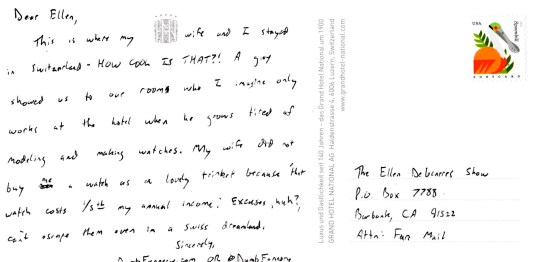 Dear Ellen,
This is where my wife and I stayed
in Switzerland - HOW COOL IS THAT?! A guy
showed us to our rooms who I imagine only
works at the hotel when he grows tired of
modeling and making watches. My wife did not
buy me a watch as a lovely trinket because that
watch costs 1/5th my annual income. Excuses, huh?,
can't escape them even in a swiss dreamland.
Sincerely,
DumbFunnery.com OR @DumbFunnery
Luxus und Gastlichkeit seit 140 Jahren - das Grand Hotel National um 1900
GRAND HOTEL NATIONAL AG Haldenstrasse 4, 6006 Luzern, Switzerland
www.grandhotel-national.com
USA
POSTCARD
The Ellen Degeneres Show
P.O. Box 7788
Burbank, CA 91522
Attn: Fun Mail